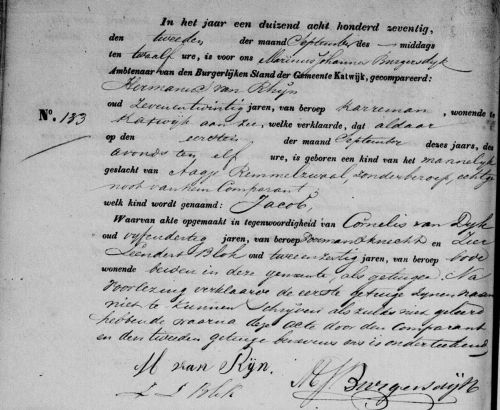 In het jaar een duizend acht honderd zeventig,
den tweeden der maand September des middags
ten twaalf ure, is voor ons Marinus Johannes Burgersdijk
Ambtenaar van den Burgerlijken Stand der Gemeente Katwijk, gecompareerd:
Hermanus van Rhijn
oud zevenentwintig jaren, van beroep karreman, wonende te
No. 183
Katwijk aan Zee, welke verklaarde, dat aldaar
op den eersten der maand September dezes jaars, des
avonds ten elf ure, is geboren een kind van het mannelijk
geslacht van Aagje Remmelzwaal, zonder beroep, echtge
noot van hem Comparant
welk kind wordt genaamd: Jacob.
Waarvan akte opgemaakt in tegenwoordigheid van Cornelis van Dyk
oud vyfendertig jaren, van beroep knecht en
Leendert Blok oud tweeenzestig jaren, van beroep bode
wonende beiden in deze gemeente als getuigen. Na
voorlezing verklaarde de eerste getuige zynen naam
niet te kunnen schrijven als zulks niet geleerd
hebbende waarna deze acte door den Comparant
en den tweeden getuige benevens ons is onderteekend
H van Rijn.
L Blok
MJ Burgersdijk